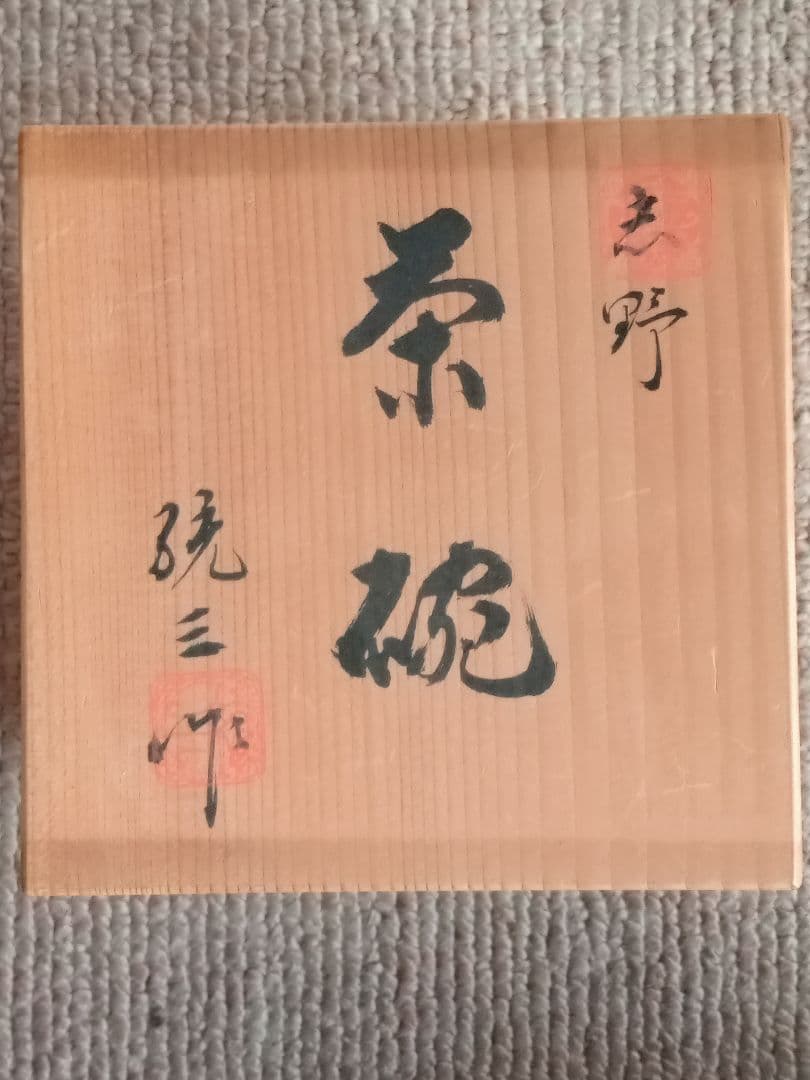 志野
茶碗
三作